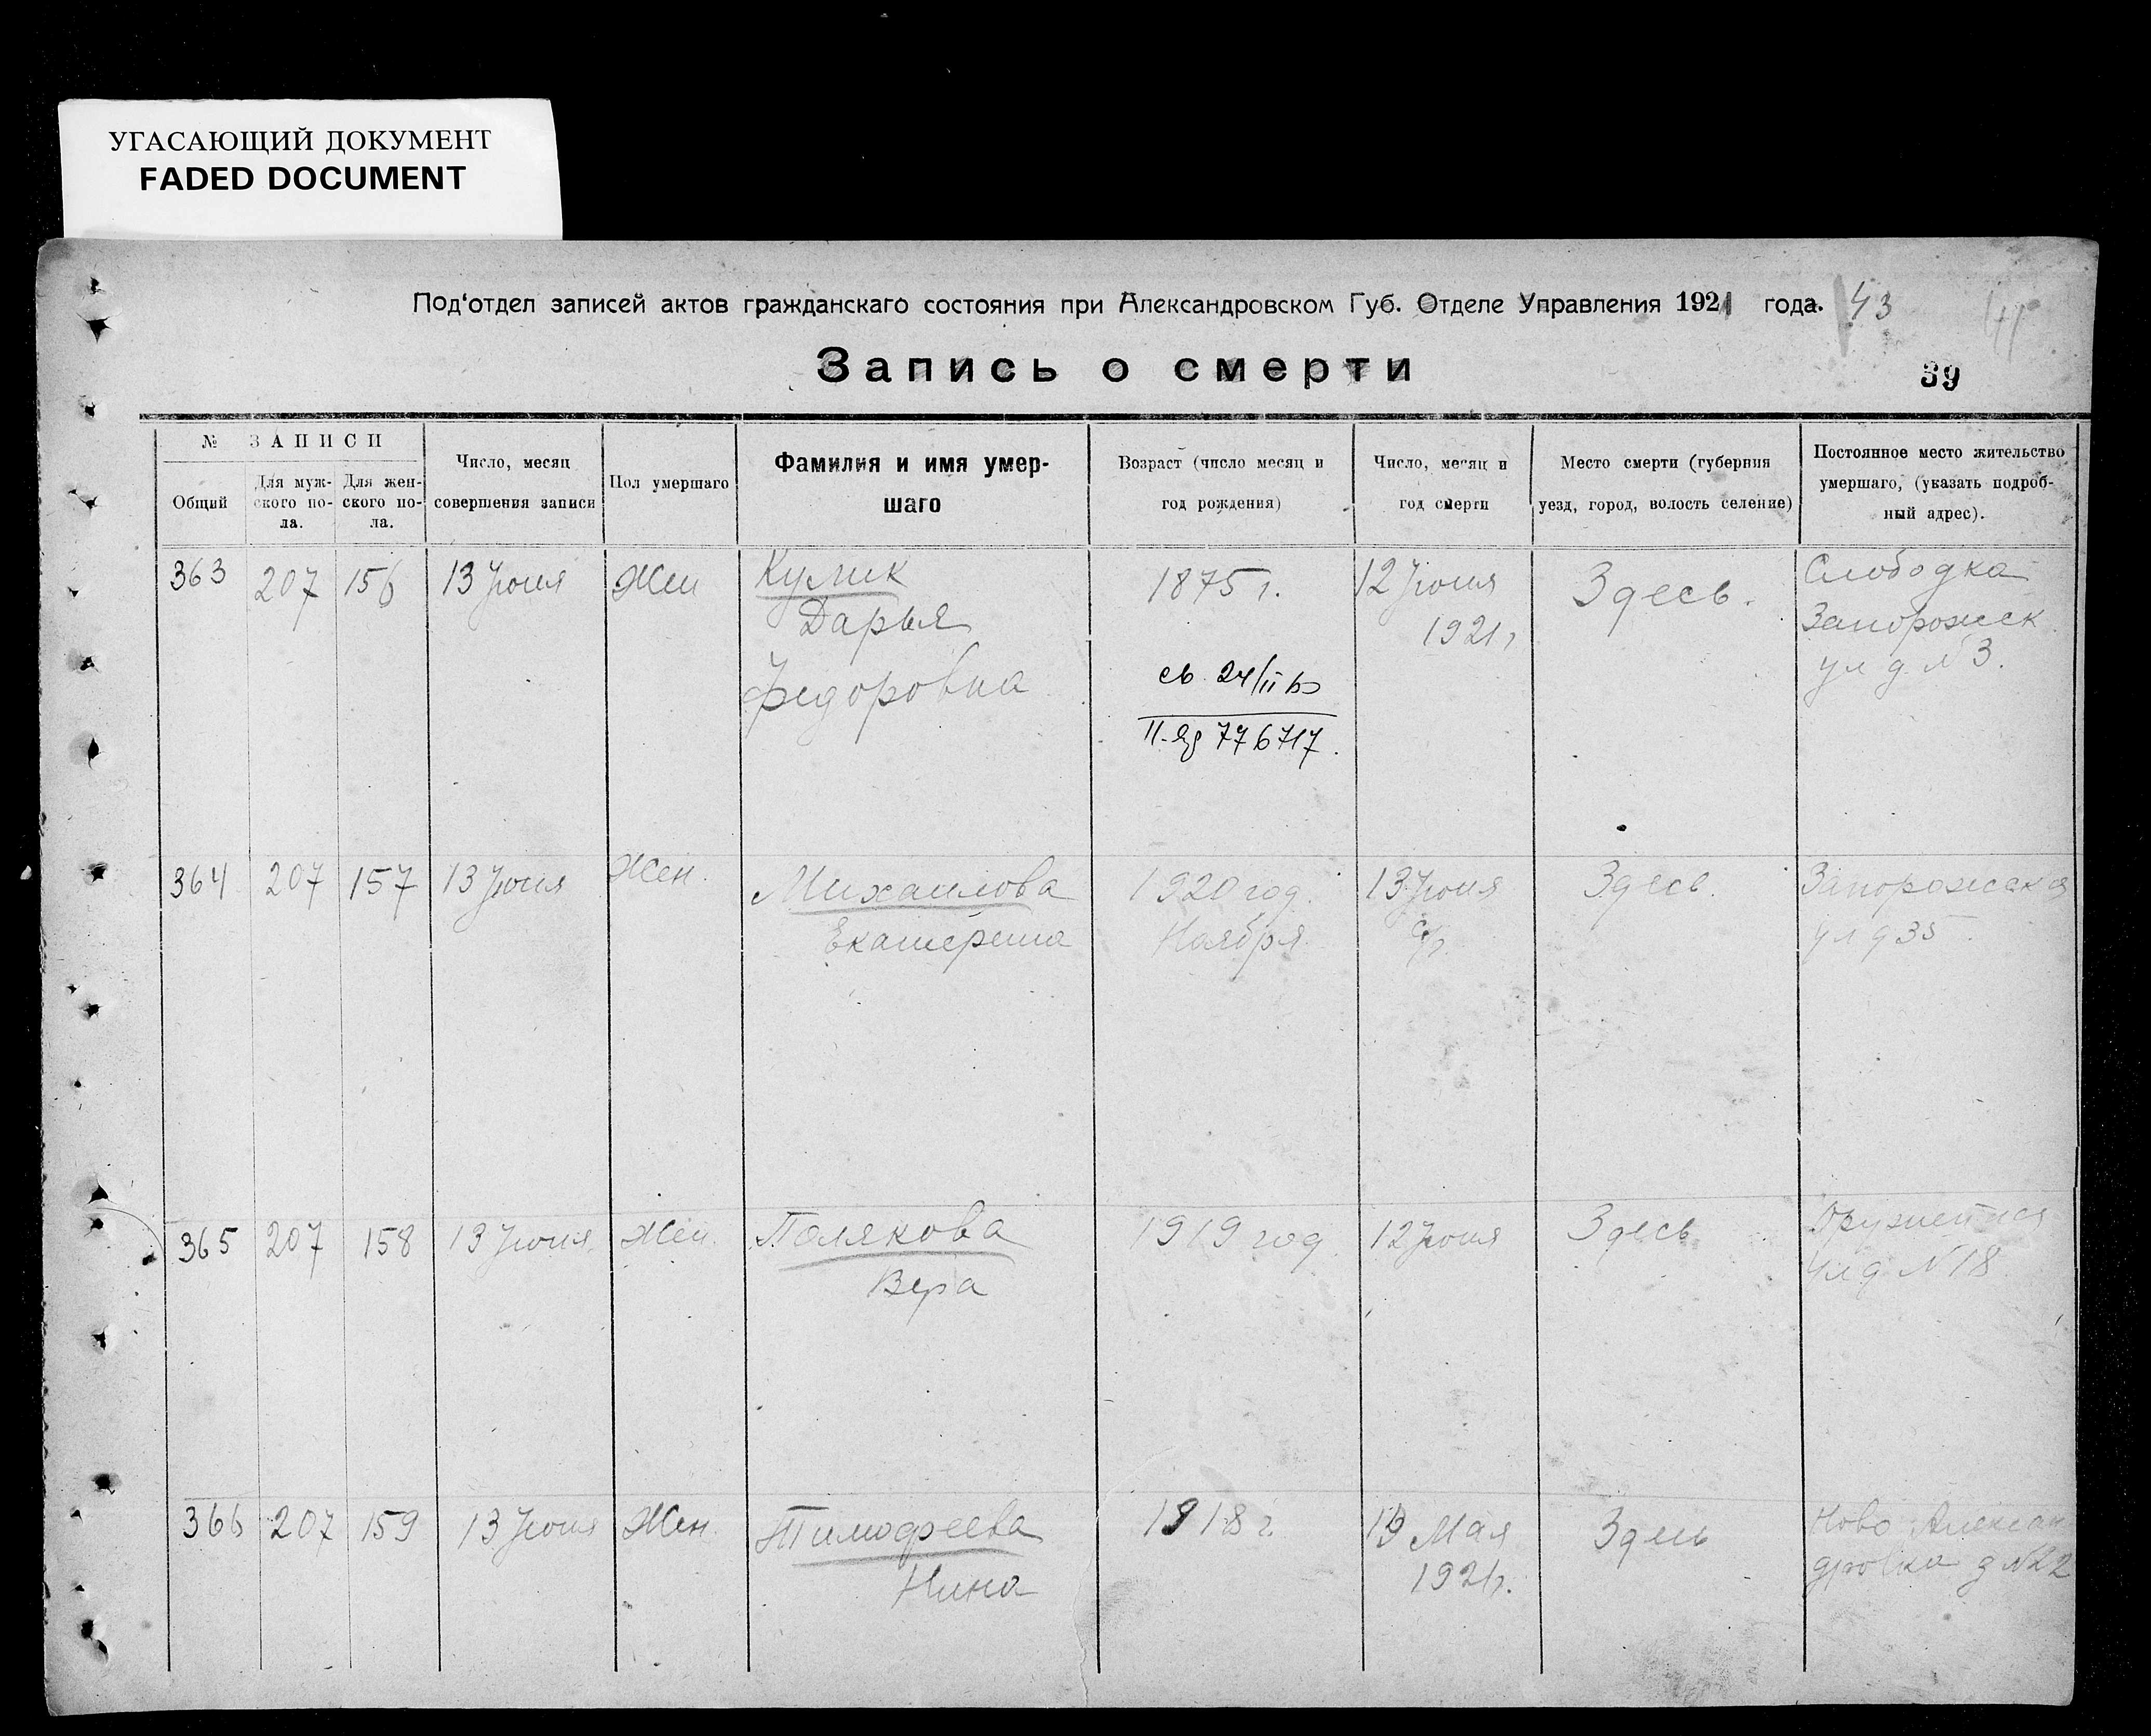 УГАСАЮЩИЙ ДОКУМЕНТ
FADED DOCUMENT
Под'отдел записей актов гражданскаго состояния при Александровском Губ. Отделе Управления 1921 года. 43
Запись о смерти
39
№ ЗАПИСИ
Общий
Для муж-
ского по-
ла.
Для жен-
ского по-
ла.
Число, месяц
совершения записи
Пол умершаго
Фамилия и имя умер-
шаго
Возраст (число месяц и
год рождения)
Число, месяц и
год смерти
Место смерти (губерния
уезд, город, волость селение)
Постоянное место жительство
умершаго, (указать подроб-
ный адрес).
363 207 156 13 Июня Жен Кулик 1875 г. 12 Июня Здесь. Слободка
Дарья 1921 г Запорожск
Федоровна ул д N 3.
св. 24/II
776717.
364 207 157 13 Июня Жен. Михаилова 1920 год. 13 Июня Здесь. Запорожская
Екатерина Ноября с/г. ул д 35
365 207 158 13 Июня Жен. Полякова 1919 год 12 Июня Здесь Оружейная
Вера ул д N 18
366 207 159 13 Июня Жен. Тимофеева 1918 г. 13 Мая Здесь Ново Алексан
Нина 1921 г. дровка д N 22